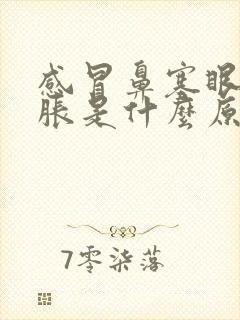 感冒鼻塞眼
脹是什麼原
7零柒落